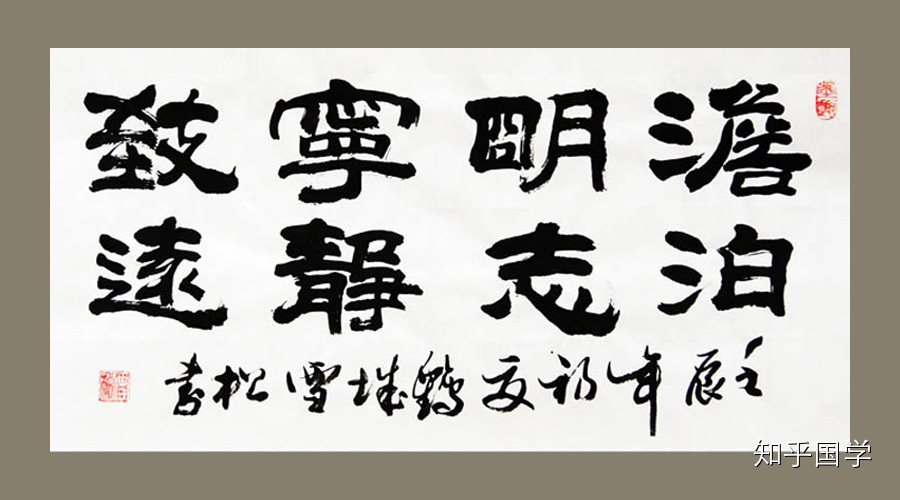 澹泊
明志
寧靜
致遠
壬辰年初夏鶴城雪松書
知乎国学